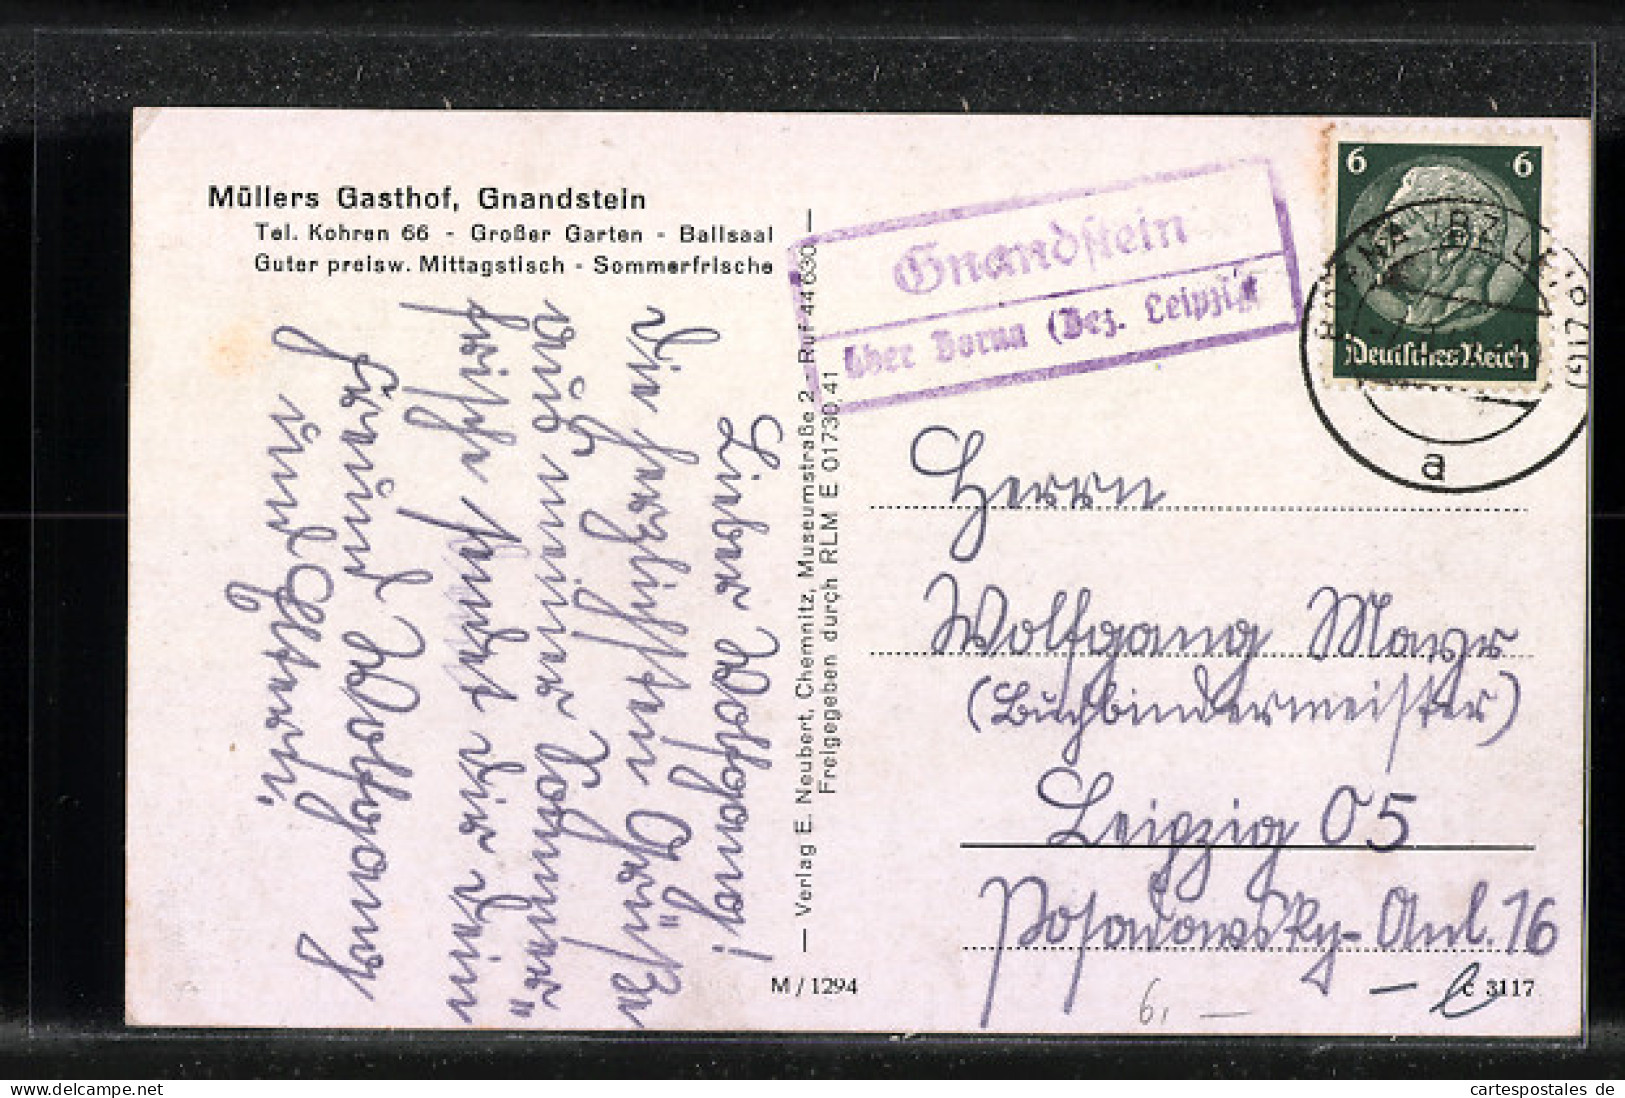 Müllers Gasthof, Gnandstein
Tel. Kohren 66 - Großer Garten - Ballsaal
Guter preisw. Mittagstisch - Sommerfrische
Lieber Wolfgang!
Die herzlichsten Grüße
aus
sendet dir dein
Freund Wolfgang
und Eltern.
— Verlag E. Neubert, Chemnitz, Museumstraße 2 - Ruf 44630 —
Freigegeben durch RLM E 01730.41
M / 1294
Gnandstein
über Borna (Bez. Leipzig)
6 6
Deutsches Reich
BORNA (BZ LEIPZIG)
a
Herrn
Wolfgang Mayr
(Buchbindermeister)
Leipzig O5
Posadowsky-Anl. 16
6,—
C 3117
cartespostales.de